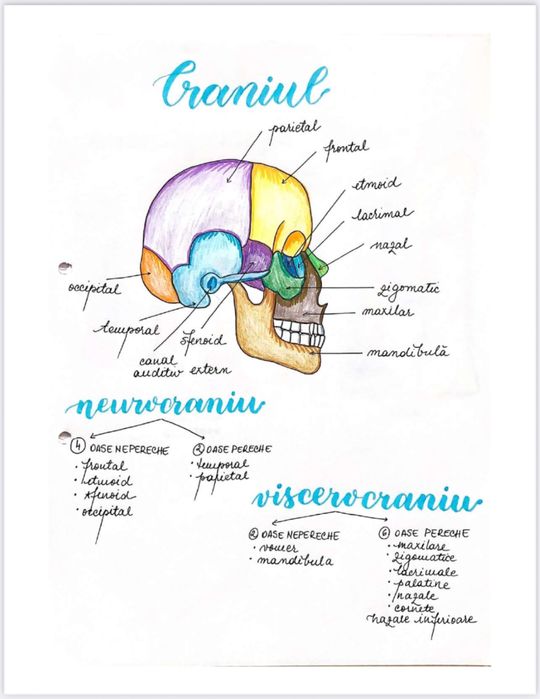 Craniul
parietal
frontal
etmoid
lacrimal
nazal
occipital
zigomatic
maxilar
temporal
sfenoid
canal
auditiv extern
mandibulă
neurocraniu
4 OASE NEPERECHE
• frontal
• etmoid
• sfenoid
• occipital
2 OASE PERECHE
• temporal
• parietal
viscerocraniu
2 OASE NEPERECHE
• vomer
• mandibula
6 OASE PERECHE
• maxilare
• zigomatice
• lacrimale
• palatine
• nazale
• cornete
nazale inferioare